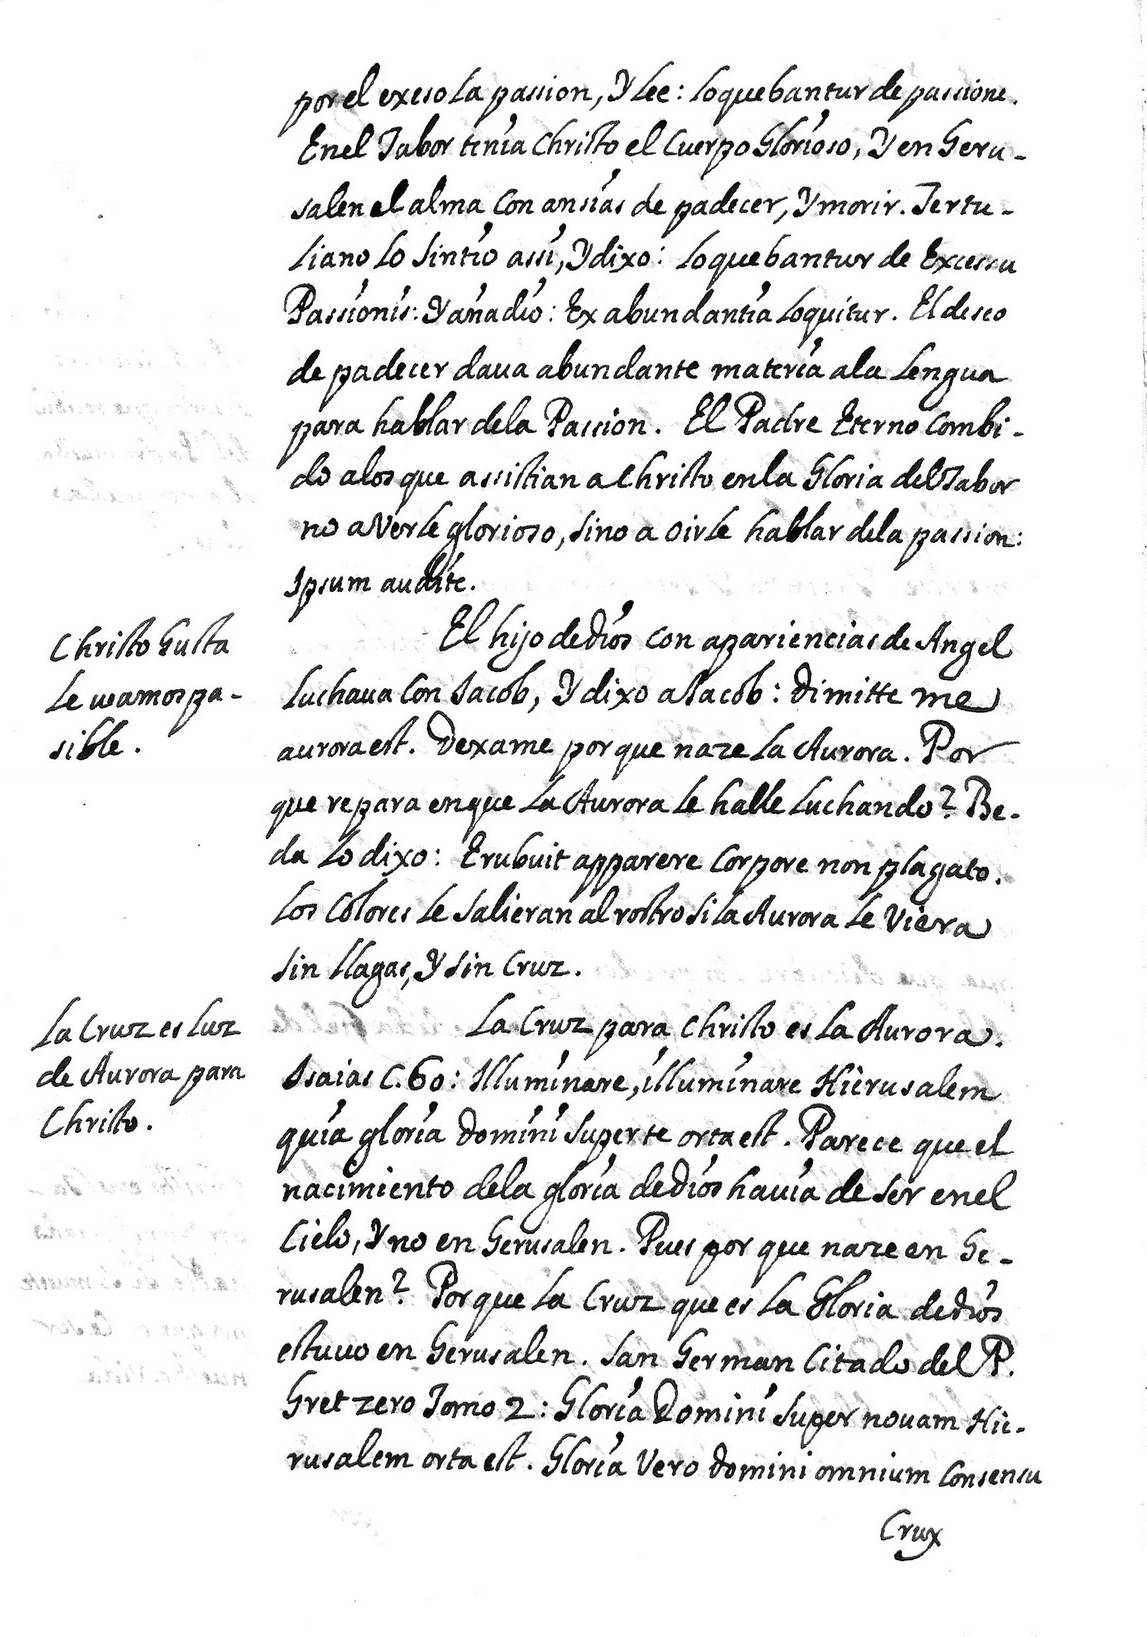 por el exeso la passion, Y lee: loquebantur de passione.
En el Tabor tenia Christo el Cuerpo Glorioso, Y en Geru-
salen el alma Con ansias de padecer, Y morir. Tertu-
liano lo Sintio assi, Y dixo: loquebantur de Excessu
Passionis: Y añadio: Ex abundantia loquitur. El deseo
de padecer daua abundante materia a la Lengua
para hablar de la Passion. El Padre Eterno Combi-
do a los que assistian a Christo en la Gloria del Tabor
no a Verle glorioso, Sino a oirle hablar de la passion:
Ipsum audite.
Christo Gusta
le veamos pa-
sible.
El hijo de dios con apariencias de Angel
Luchaua Con Jacob, Y dixo a Jacob: dimitte me
aurora est. Dexame porque naze La Aurora. Por
que repara en que La Aurora le halle Luchando? Be-
da Lo dixo: Erubuit apparere Corpore non plagato.
Los Colores le Salieran al rostro Si la Aurora le Viera
Sin llagas, Y Sin Cruz.
La Cruz es Luz
de Aurora para
Christo.
La Cruz para Christo es La Aurora.
Isaias C. 60: Illuminare, illuminare Hierusalem
quia gloria Domini Super te orta est. Parece que el
nacimiento de la gloria de dios havia de ser en el
Cielo, Y no en Gerusalen. Pues por que naze en Ge-
rusalen? Porque La Cruz que es La Gloria de dios
estuuo en Gerusalen. San German Citado del P.
Gretzero Tomo 2: Gloria Domini Super novam Hie-
rusalem orta est. Gloria Vero Domini omnium Consensu
Crux